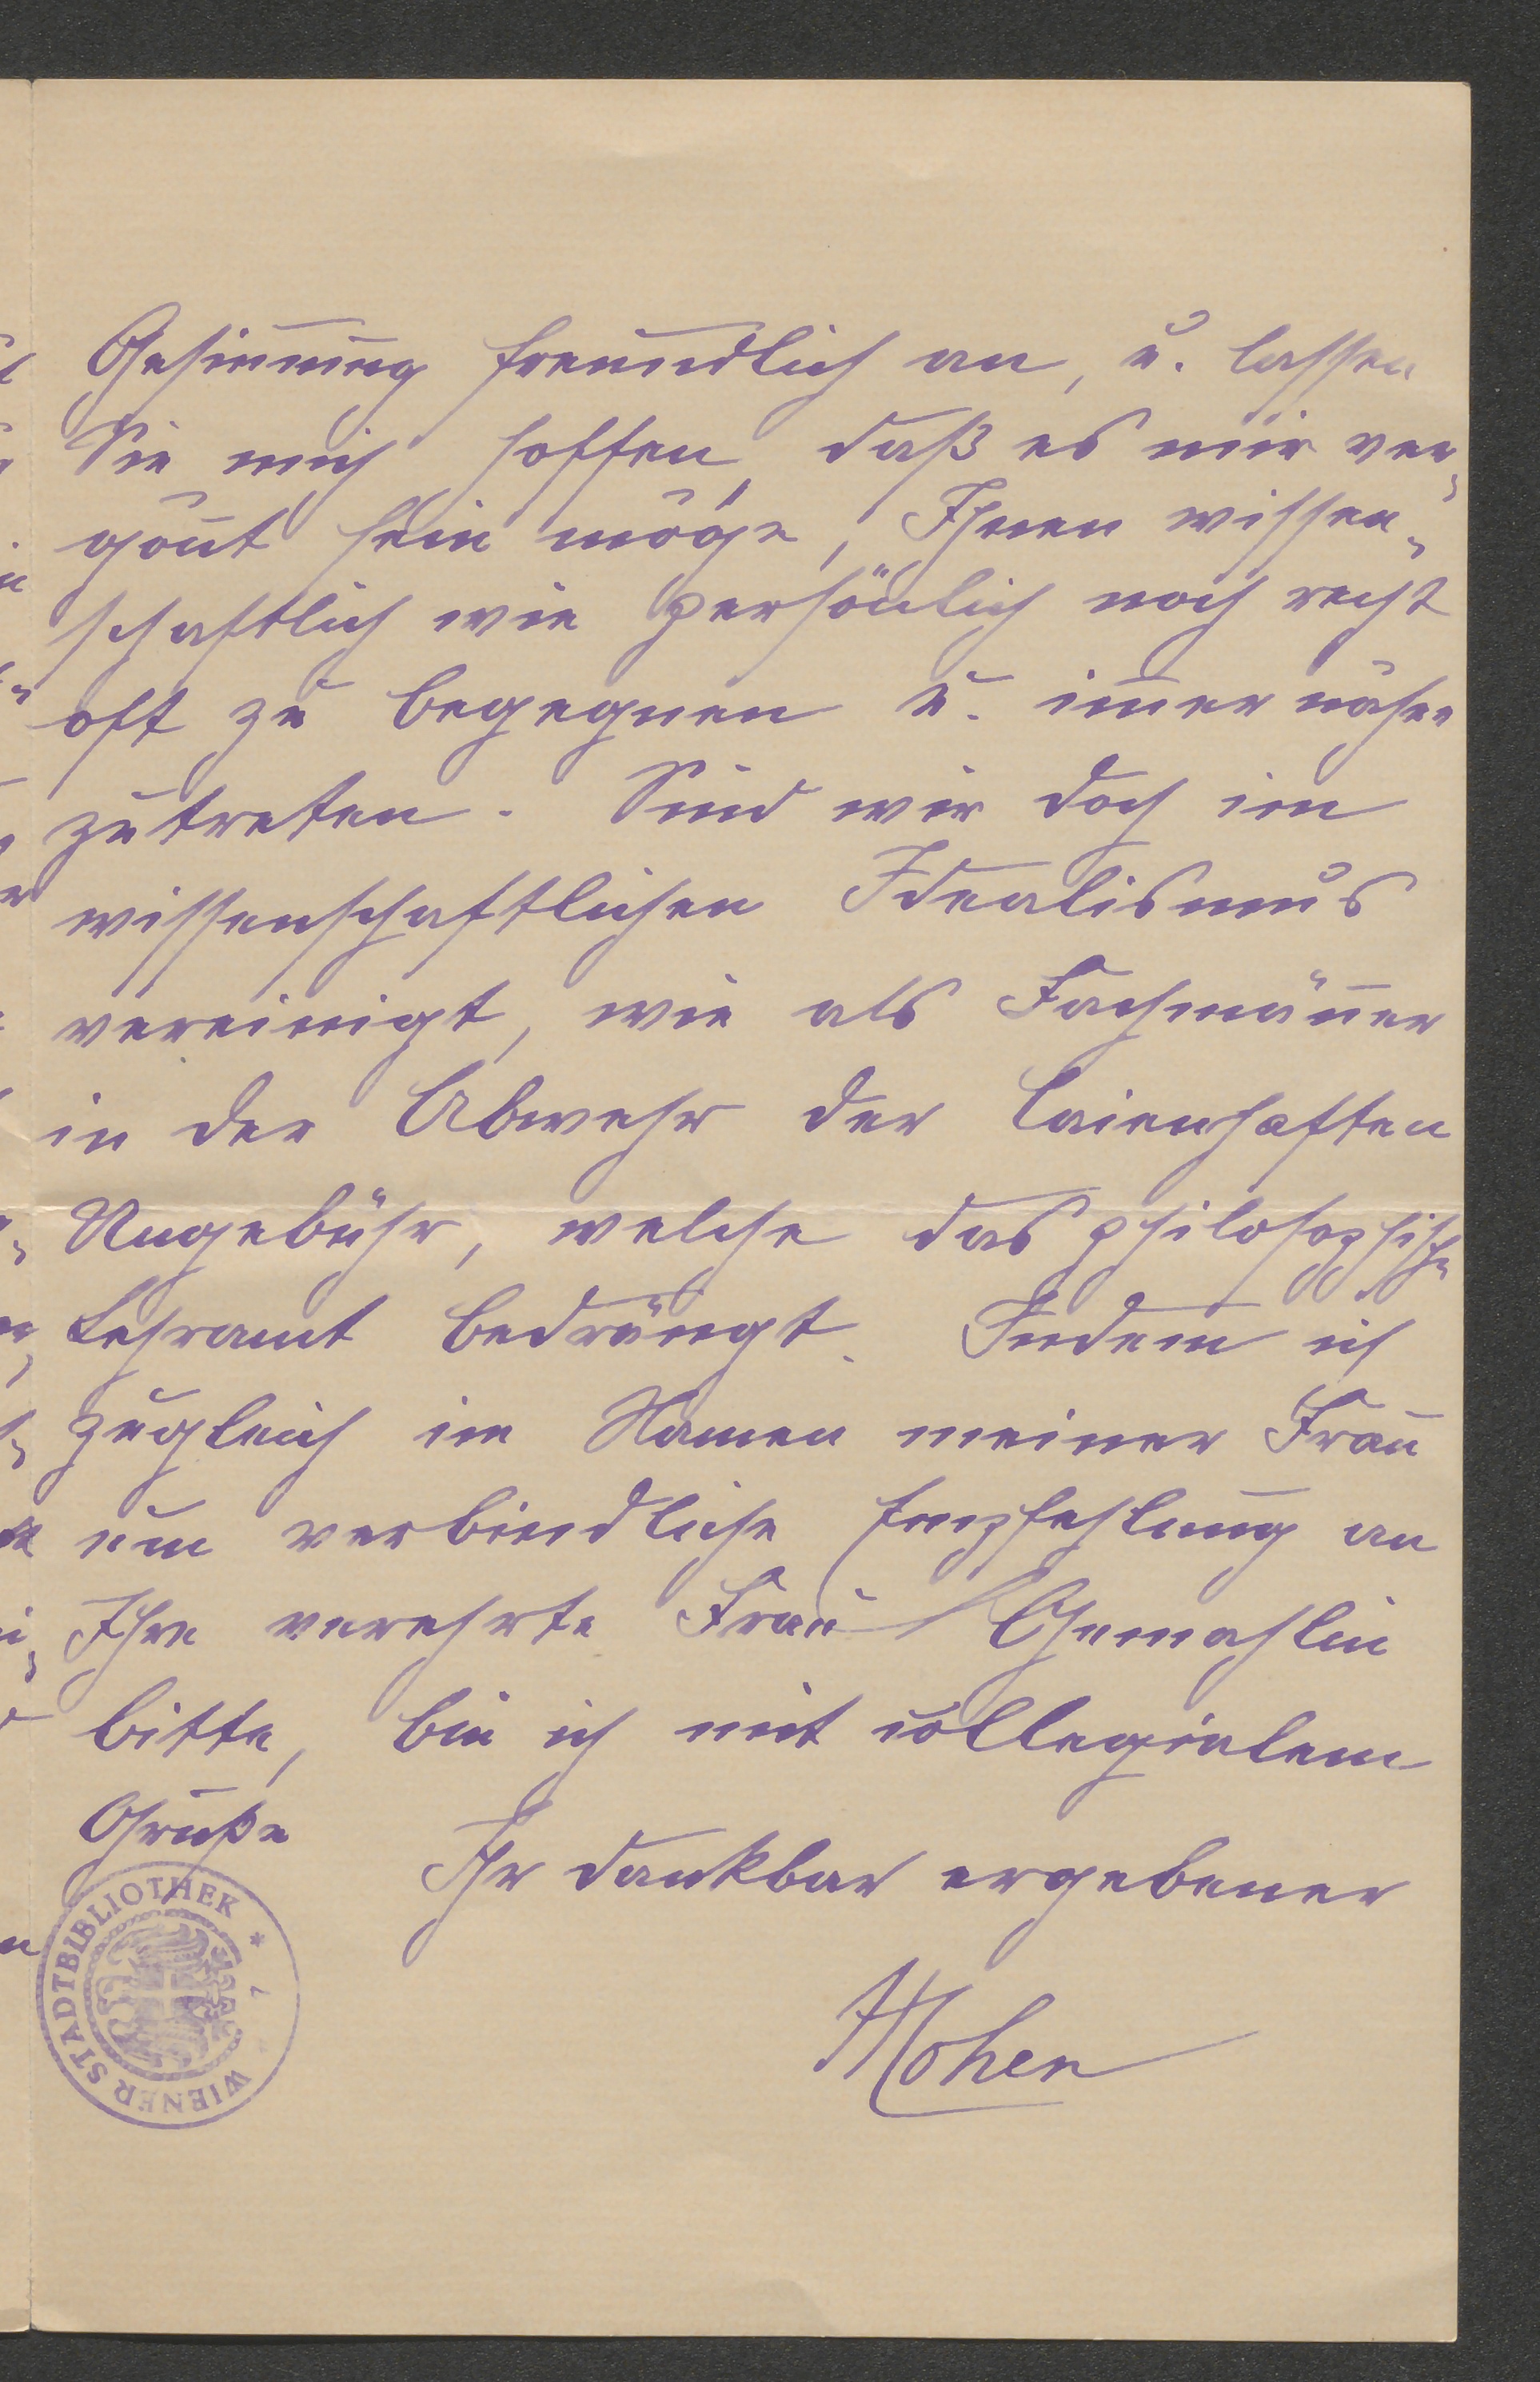 Gesinnung freundlich an, u. lassen
Sie mich hoffen, daß es mir ver-
gönt sein möge, Ihnen wissen-
schaftlich wie persönlich noch recht
oft zu begegnen u. im̅er näher
zutreten. Sind wir doch im
wissenschaftlichen Idealismus
vereinigt, wie als Fachmän̅er
in der Abwehr der laienhaften
Ungebühr, welche das philosophische
Lehramt bedrängt. Indem ich
zugleich im Namen meiner Frau
um verbindliche Empfehlung an
Ihre verehrte Frau Gemahlin
bitte, bin ich mit collegialem
Gruße
Ihr dankbar ergebener
HCohen
WIENER STADTBIBLIOTHEK *